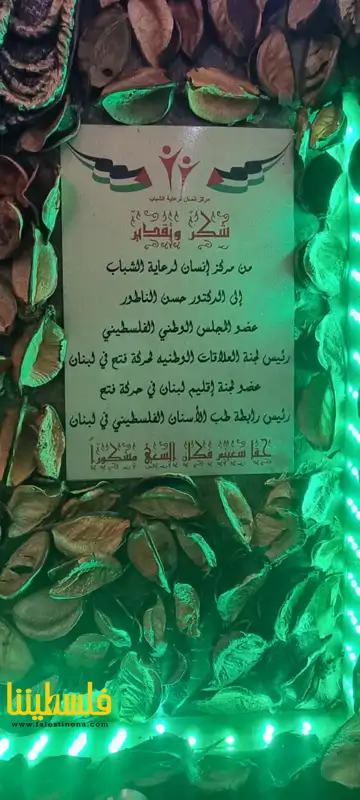 مركز إنسان لرعاية الشباب
شكر وتقدير
من مركز إنسان لرعاية الشباب
إلى الدكتور حسن الناطور
عضو المجلس الوطني الفلسطيني
رئيس لجنة العلاقات الوطنيه لحركة فتح في لبنان
عضو لجنة إقليم لبنان في حركة فتح
رئيس رابطة طب الأسنان الفلسطيني في لبنان
حقا سعيتم فكان السعي مشكوراً
فلسطيننا
www.falestinona.com